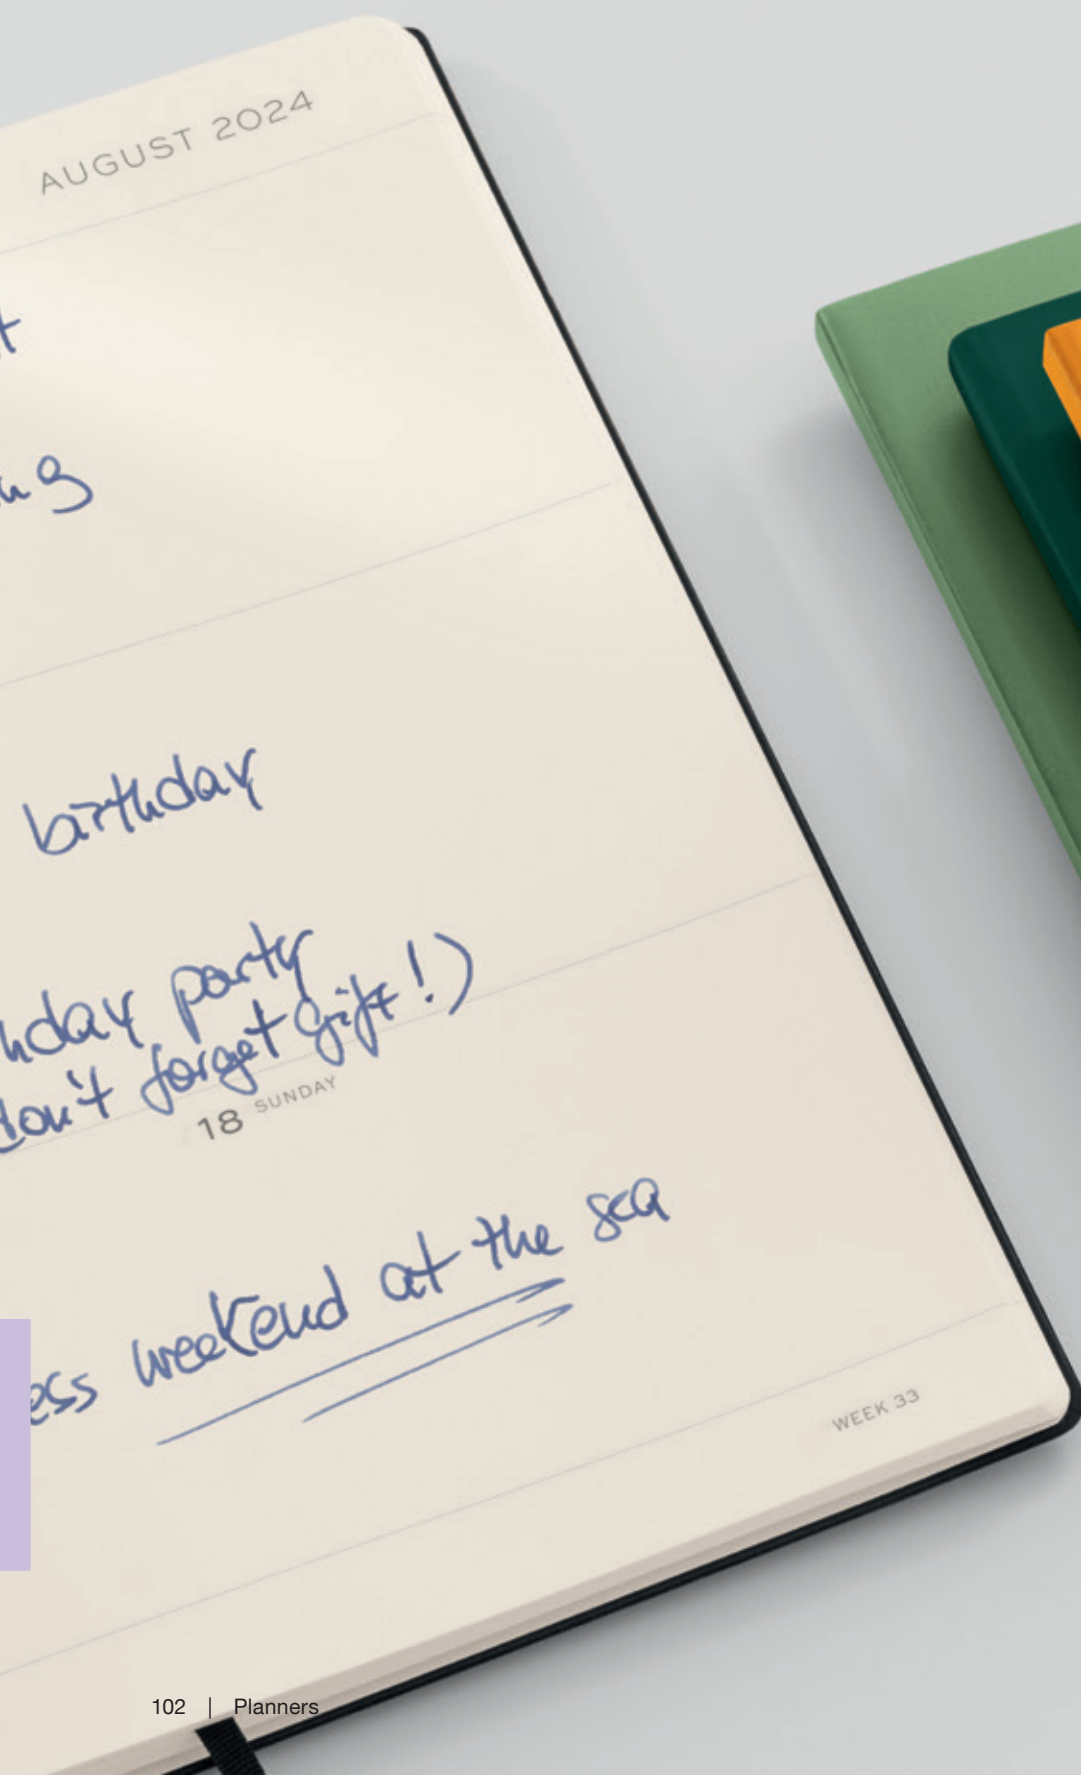 AUGUST 2024
birthday
party
don't forget gift!)
18 SUNDAY
weekend at the sea
WEEK 33
102 | Planners